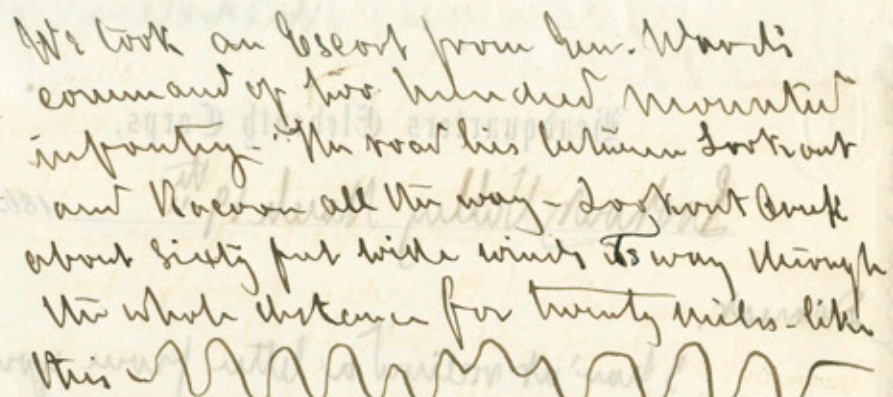 We took an Escort from Gen. Ward's
command of two hundred mounted
infantry - The road lies between Lookout
and Racoon all the way - Lookout Creek
about sixty feet wide winds its way through
the whole distance for twenty miles - like
this -